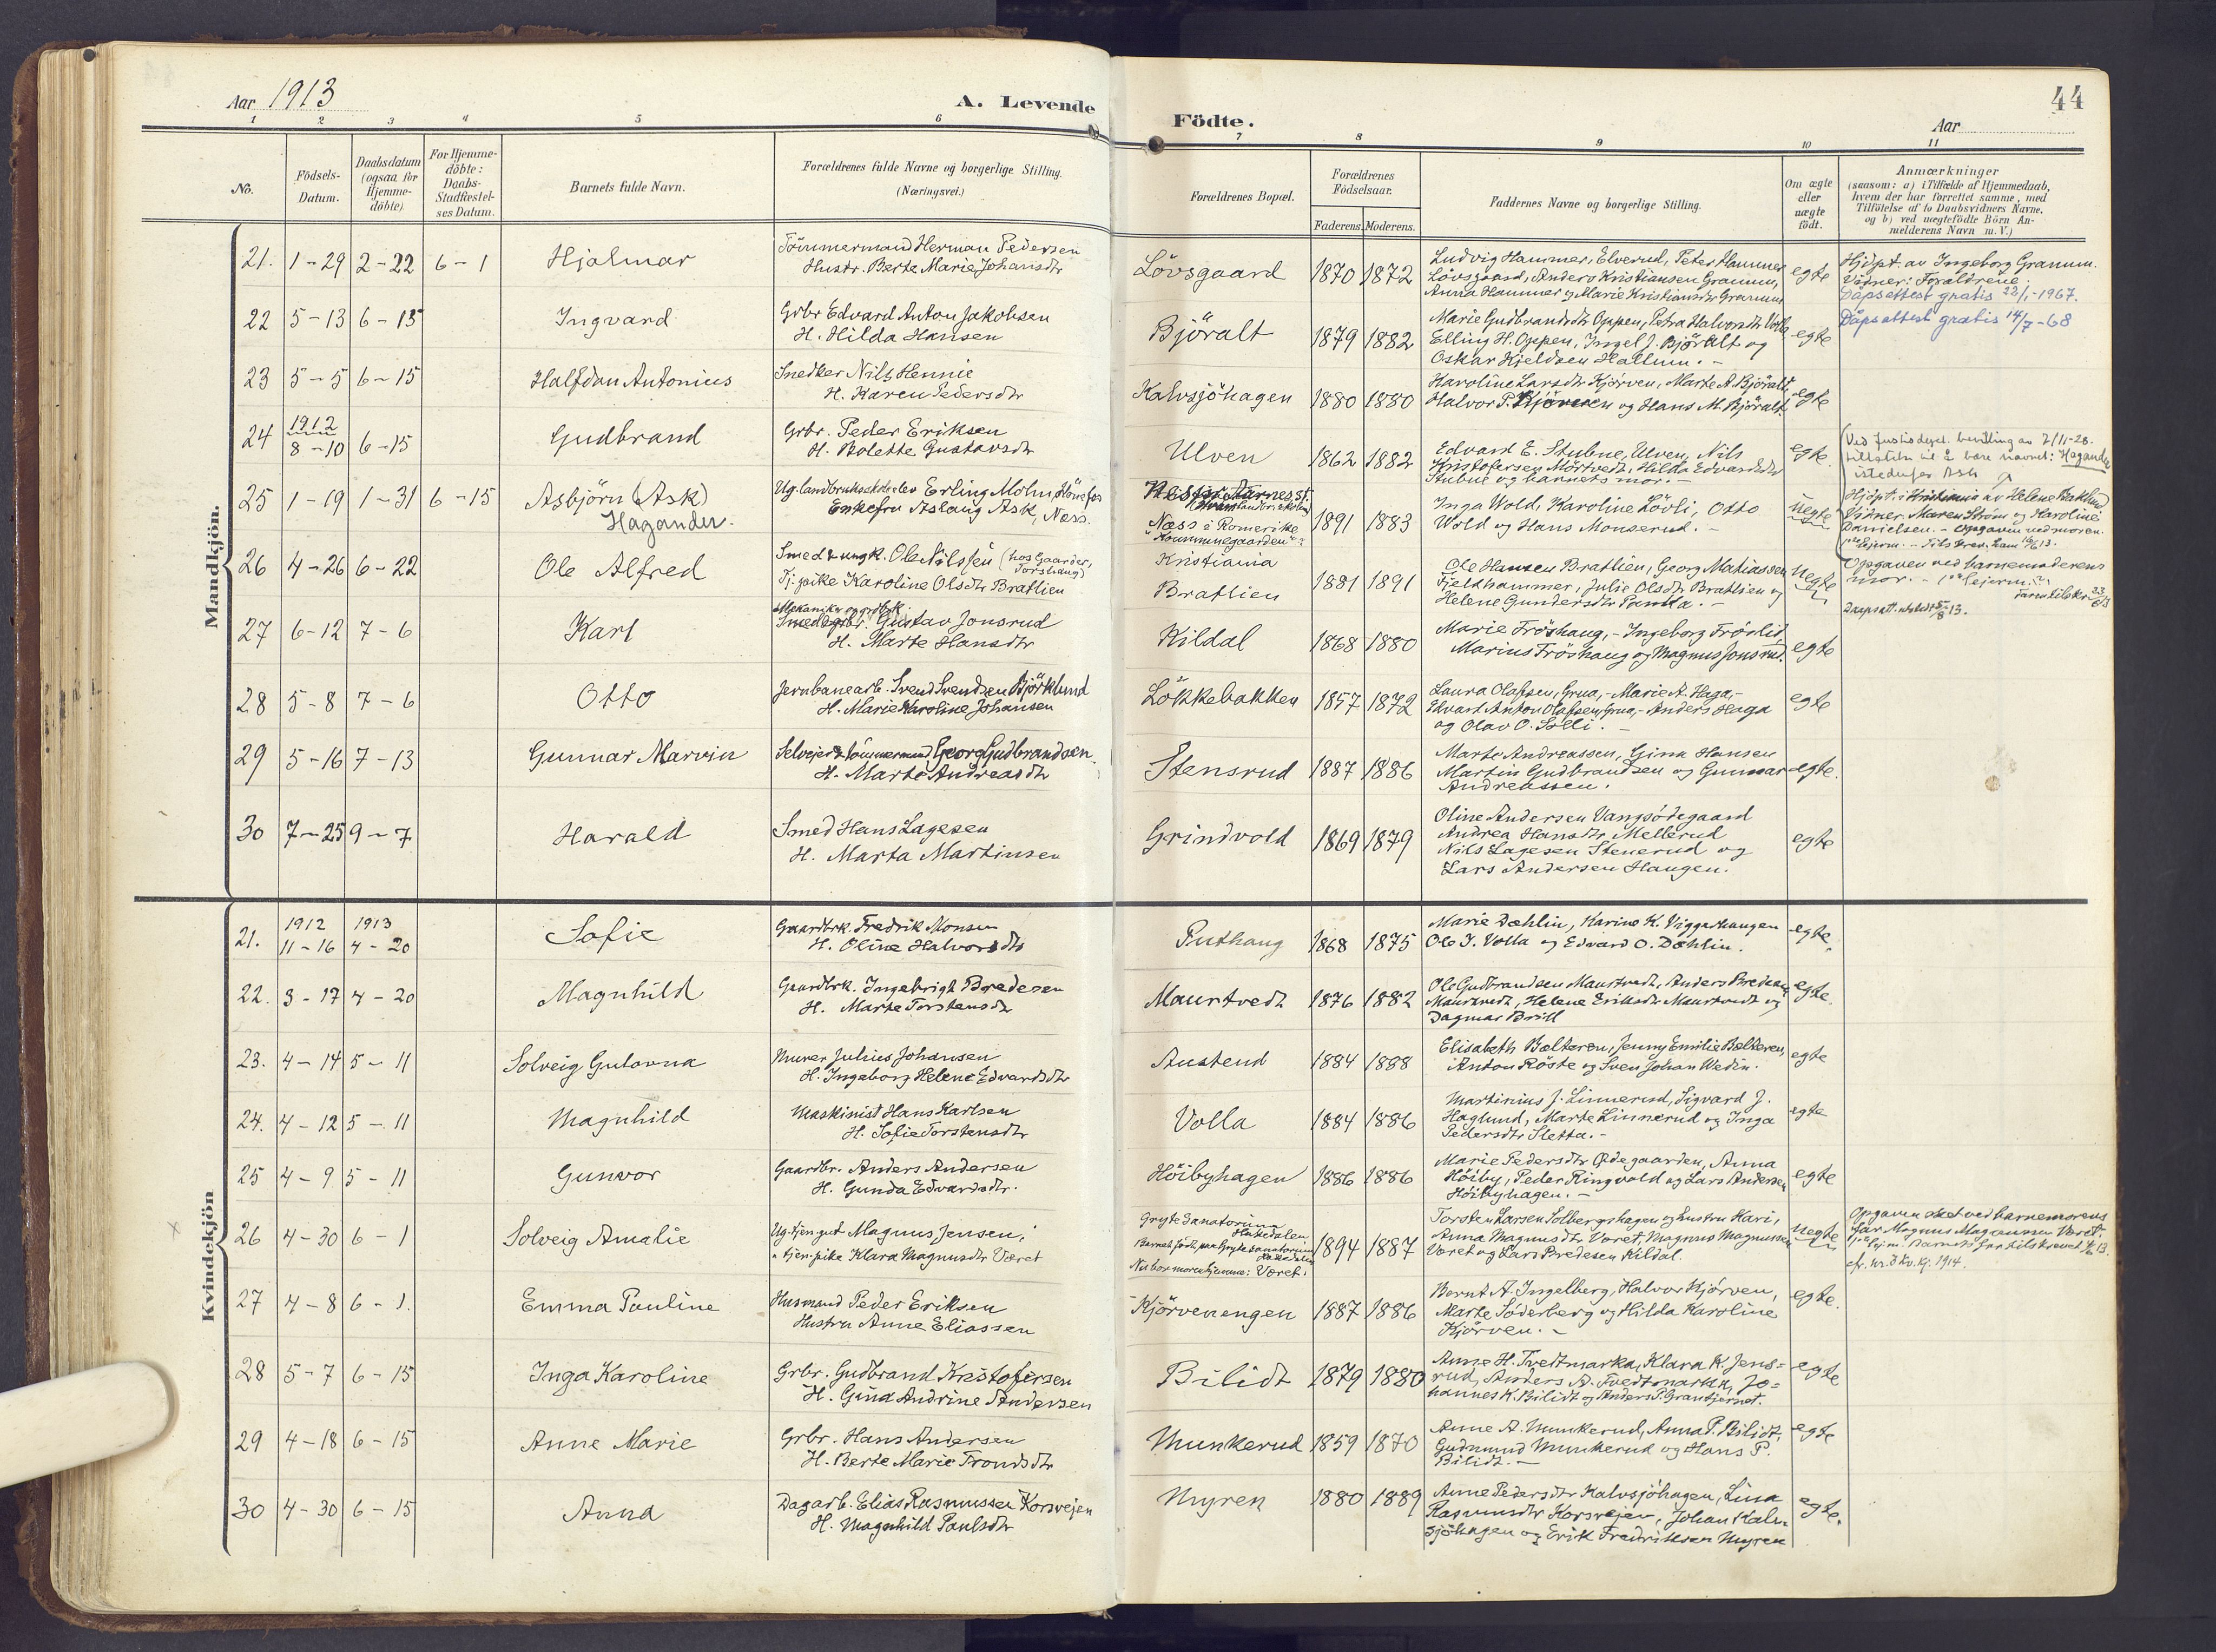 Aar 1913
A. Levende
Födte.
Aar
44
1 2 3 4 5 6 7 8 9 10 11
No.
Födsels-Datum.
Daabsdatum (ogsaa for Hjemme-döbte)
For Hjemme-döbte: Daabs-Stadfæstel-ses Datum.
Barnets fulde Navn.
Forældrenes fulde Navne og borgerlige Stilling. (Næringsvei.)
Forældrenes Bopæl.
Forældrenes Födselsaar.
Faderens. Moderens.
Faddernes Navne og borgerlige Stilling.
Om ægte eller uægte födt.
Anmærkninger
(saasom: a) i Tilfælde af Hjemmedaab, hvem der har forrettet samme, med Tilföielse af to Daabsvidners Navne, og b) ved uægtefödte Börn An-melderens Navn m. V.)
Mandkjön.
21. 1-29 2-22 6-1 Hjalmar
Tömmermand Herman Pedersen
Hustr. Berte Marie Johansdtr
Lövsgaard 1870 1872
Ludvig Hammer, Elverud, Peter Hammer
Lövsgaard, Anders Kristiansen Granum,
Anna Hammer og Marie Kristiansdtr Granum
egte
Hjdpt. av Ingeborg Granum.
Vidner: Forældrene.
Dåpsattest gratis 23/1-1967.
22 5-13 6-15 Ingvard
Grbr Edvard Anton Jakobsen
H. Hilda Hansen
Björalt 1879 1882
Marie Gudbrandsdtr Oppen, Petra Halvorsdtr Volla
Elling H. Oppen, Ingel J. Björalt og
Oskar Kjeldsen Hallum. -
egte
Dåpsattest gratis 14/7-68
23 5-5 6-15 Halfdan Antonius
Snedker Nils Hennie
H. Karen Pedersdtr
Kalvsjöhagen 1880 1880
Karoline Larsdtr Kjörven, Marte A. Björalt,
Halvor P. Kjörven og Hans M. Björalt.
egte
24 1912 8-10 6-15 Gudbrand
Grbr. Peder Eriksen
H. Bolette Gustavsdtr
Ulven 1862 1882
Edvard E. Stubne, Ulven, Nils
Kristofersen Mörtvedt, Hilda Edvardsdtr
Stubne og barnets mor. -
egte.
25 1-19 1-31 6-15 Asbjörn (Ask)
Hagander.
Ug. landbruksskoleelev Erling Mohn, Hönefos
Enkefru Aslaug Ask, Næss.
Næss i Romerike
"Kommunegaarden"
1891 1883
Inga Wold, Karoline Lövli, Otto
Wold og Hans Monserud. -
uegte
Ved Justisdept. bevilling av 7/11-28.
tillatelse til å bære navnet: Hagander
istedenfor Ask
Hjdpt. i Kristiania av Helene Berklund
Vidner: Maren Ström og Karoline
Danielsen. - Opgaven ved moren.
26 4-26 6-22 Ole Alfred
Smed & ungk. Ole Nilssen (hos Gaarder, Torshaug)
Tj. pike Karoline Olsdtr Bratlien
Kristiania
Bratlien 1881 1891
Ole Hansen Bratlien, Georg Matiassen
Fjeldhammer, Julie Olsdtr Bratlien og
Helene Gundersdtr Paaska. -
Uegte
Opgaven ved barnemoderens
mor. - 1ste leierm.
Daapsatt. utstedt 5/8-13.
27 6-12 7-6 Karl
Mekaniker og grdbrk.
Smed & grbr. Gustav Jonsrud
H. Marte Hansdtr
Kildal 1868 1880
Marie Fröshaug, - Ingeborg Fröslid,
Marius Fröshaug og Magnus Jonsrud.
egte
28 5-8 7-6 Otto
Jernbanearb. Svend Svendsen Björklund
H. Marie Karoline Johansen
Lökkebakken 1857 1872
Laura Olafsen, Grua, - Marie A. Haga, -
Edvart Anton Olafsen, Grua, - Anders Haga
og Olav O. Solli. -
egte
29 5-16 7-13 Gunnar Marvin
Selveier & tömmermand Georg Gudbrandsen.
H. Marte Andreasdtr
Stensrud 1887 1886
Marte Andreassen, Gina Hansen
Martin Gudbrandsen og Gunnar
Andreassen.
egte.
30 7-25 9-7 Harald
Smed Hans Lagesen
H. Marta Martinsen
Grindvold 1869 1879
Oline Andersen Vangsödegaard
Andrea Hansdtr Mellerud
Nils Lagesen Stenerud og
Lars Andersen Haugen.
egte
Kvindekjön
21. 1912 11-16 1913 4-20 Sofie
Gaardbrk. Fredrik Monsen
H. Oline Halvorsdtr
Puthaug 1868 1875
Marie Dæhlin, Karine K. Viggashaugen
Ole J. Volla og Edvard O. Dæhlin.
egte.
22. 3-17 4-20 Magnhild
Gaardbrk. Ingebrigt Bredesen
H. Marte Torstensdtr
Maurtvedt 1876 1882
Ole Gudbrandsen Maurtvedt, Anders Bredesen
Maurtvedt, Helene Eriksdtr Maurtvedt og
Dagmar Brill
egte.
23. 4-14 5-11 Solveig Gulovna
Murer Julius Johansen
H. Ingeborg Helene Edvardsdtr
Austend 1884 1888
Elisabeth Bælteren, Jenny Emilie Bælteren,
Anton Röste og Sven Johan Wedin.
egte
24. 4-12 5-11 Magnhild
Maskinist Hans Karlsen
H. Sofie Torstensdtr
Volla 1884 1886
Martinius J. Linnerud, Sigvard J.
Haglund, Marte Linnerud og Inga
Pedersdtr Sletta. -
egte
25 4-9 5-11 Gunvor
Gaardbr. Anders Andersen
H. Gunda Edvardsdtr.
Höibyhagen 1886 1886
Marie Pedersdtr Ödegaarden, Anna
Höiby, Peder Ringvold og Lars Andersen
Höibyhagen. -
egte
26 4-30 6-1 Solveig Amalie
Ug. tjen.gut Magnus Jensen,
" tjen.pike Klara Magnusdtr Været
Gryte Sanatorium
Hakedalen
Barnet födt paa Gryte Sanatorium
Hakedalen
Nu bor moren hjemme: Været.
1894 1887
Torsten Larsen Solbergshagen og hustru Kari,
Anna Magnusdtr Været, Magnus Magnussen
Været og Lars Bredesen Kildal.
Uegte
Opgaven sket ved barnemorens
far Magnus Magnussen Været.
cfr. nr. 3 Kv. kj. 1914.
27 4-8 6-1. Emma Pauline
Husmand Peder Eriksen
Hustru Anne Eliassen
Kjörvenengen 1887 1886
Bernt A. Ingelberg, Halvor Kjörven,
Marte Söderberg og Hilda Karoline
Kjörven. -
egte.
28 5-7 6-15 Inga Karoline
Grbr. Gudbrand Kristofersen
H. Gina Andrine Andersen
Bilidt 1879 1880
Anne H. Tvedtmarka, Klara K. Jens=
rud, Anders A. Tvedtmarka, Jo=
hannes K. Bilidt og Anders P. Grantjernet.
egte
29 4-18 6-15 Anne Marie
Grbr. Hans Andersen
H. Berte Marie Trondsdtr
Munkerud 1859 1870
Anne A. Munkerud, Anna P. Bilidt,
Gudmund Munkerud og Hans P.
Bilidt. -
egte
30 4-30 6-15 Anna
Dagarb. Elias Rasmussen Korsvejen
H. Magnhild Paulsdtr
Myren 1880 1889
Anne Pedersdtr Kalvsjöhagen, Lina
Rasmusdtr Korsvejen, Johan Kalv-
sjöhagen og Erik Fredriksen Myren
egte.